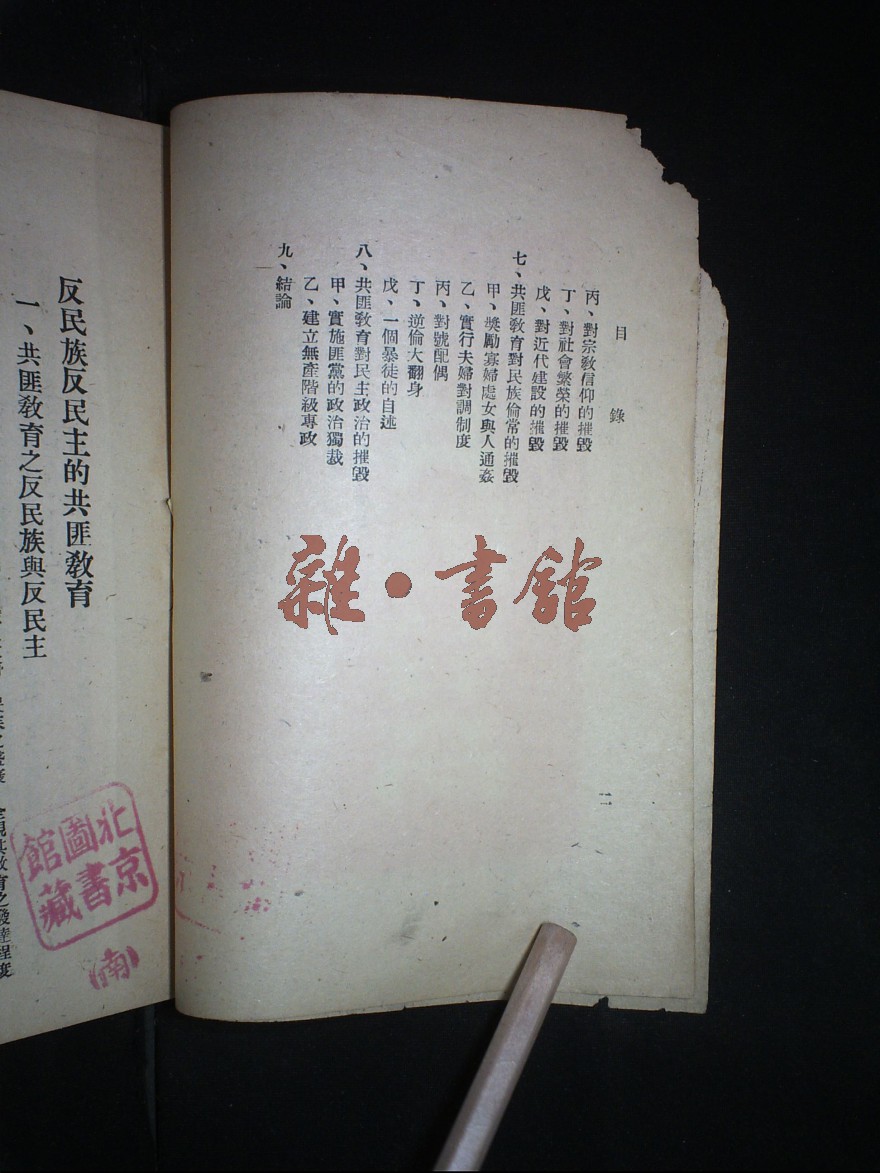 目錄
丙、對宗敎信仰的摧毀
丁、對社會繁榮的摧毀
戊、對近代建設的摧毀
七、共匪敎育對民族倫常的摧毀
甲、獎勵寡婦處女與人通姦
乙、實行夫婦對調制度
丙、對號配偶
丁、逆倫大翻身
戊、一個暴徒的自述
八、共匪敎育對民主政治的摧毀
甲、實施匪黨的政治獨裁
乙、建立無產階級專政
九、結論
二
雜•書館
反民族反民主的共匪敎育
一、共匪敎育之反民族與反民主
北京圖書館藏
（南）